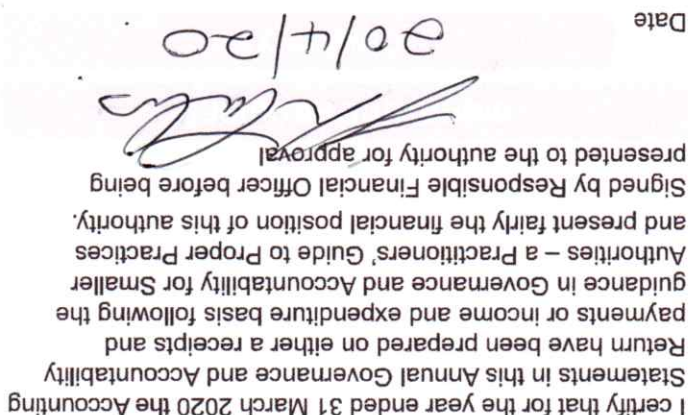 I certify that for the year ended 31 March 2020 the Accounting
Statements in this Annual Governance and Accountability
Return have been prepared on either a receipts and
payments or income and expenditure basis following the
guidance in Governance and Accountability for Smaller
Authorities – a Practitioners' Guide to Proper Practices
and present fairly the financial position of this authority.
Signed by Responsible Financial Officer before being
presented to the authority for approval
20/4/20
Date